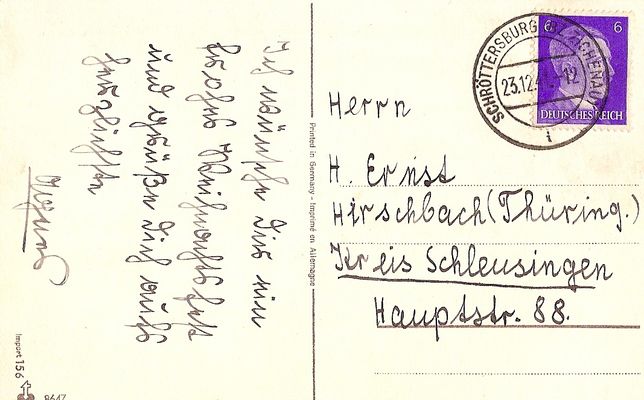 Ich wünsche Dir ein
frohes Weihnachtsfest
und grüße Dich aufs
herzlichste
Printed in Germany - Imprimé en Allemagne
Import 156
8647
SCHRÖTTERSBURG
23.12.4
-12
6
DEUTSCHES REICH
Herrn
H. Ernst
Hirschbach (Thüring.)
Kreis Schleusingen
Hauptstr. 88.